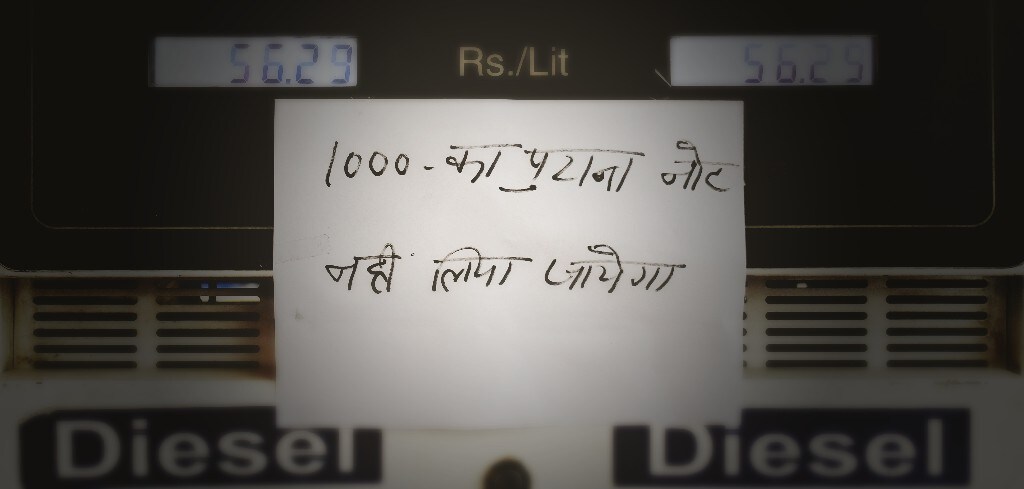 56.29 Rs./Lit 56.29
1000-का पुराना नोट
नही लिया जायेगा
Diesel Diesel